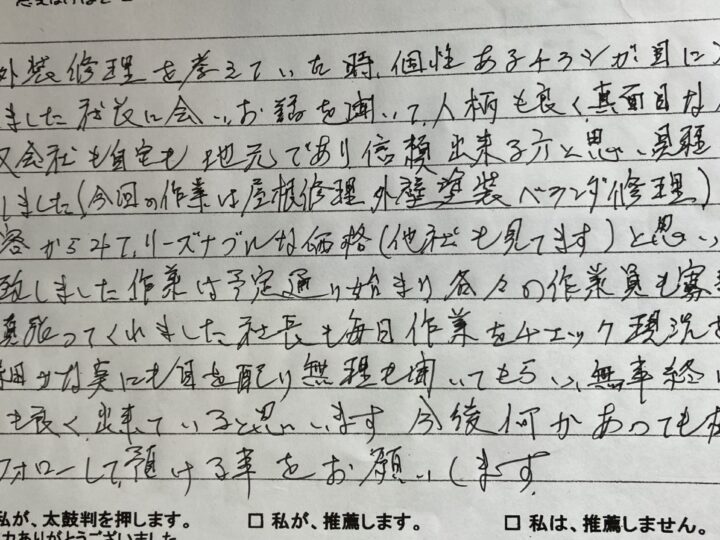 外装修理を考えていた時、個性あるチラシが目に
ました社長に会い、お話を聞いて、人柄も良く、真面目な
又会社も自宅も地元であり信頼出来る方と思い見積
しました(今回の作業は屋根修理外壁塗装ベランダ修理)
容からみて、リーズナブルな価格(他社も見てます)と思い
致しました作業は予定通り始まり各々の作業員も寡
頑張ってくれました社長も毎日作業をチェック現況を
細かな実にも目を配り無理も聞いてもらい、無事終
も良く出来ていると思います今後何かあっても
フォローして頂ける事をお願いします
私が、太鼓判を押します。 □ 私が、推薦します。 □ 私は、推薦しません。
力ありがとうございました